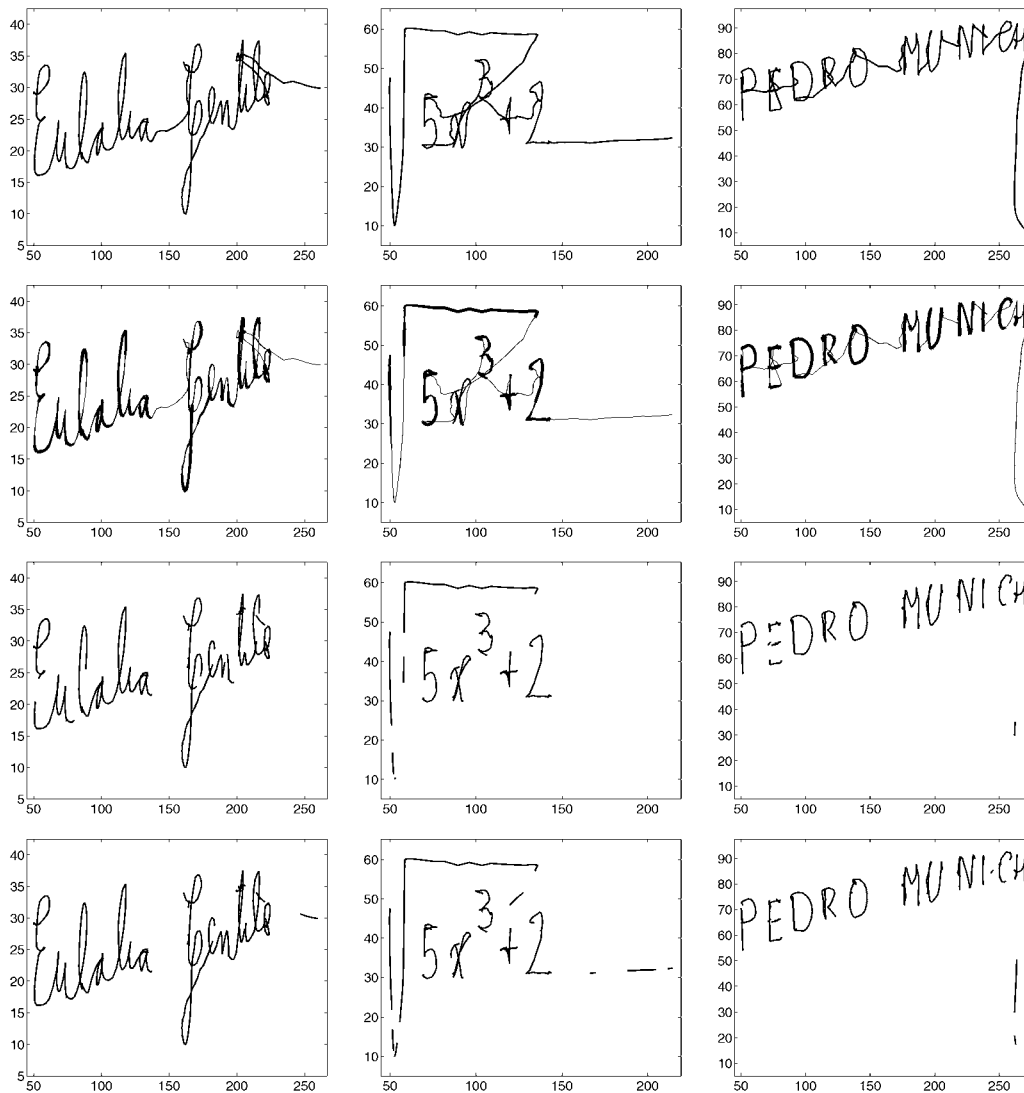 40
35
30
25
20
15
10
5
50 100 150 200 250
Eulalia
60
50
40
30
20
10
50 100 150 200
√5x³+2
90
80
70
60
50
40
30
20
10
50 100 150 200 250
PEDRO MUNICH
40
35
30
25
20
15
10
5
50 100 150 200 250
Eulalia
60
50
40
30
20
10
50 100 150 200
√5x³+2
90
80
70
60
50
40
30
20
10
50 100 150 200 250
PEDRO MUNICH
40
35
30
25
20
15
10
5
50 100 150 200 250
Eulalia
60
50
40
30
20
10
50 100 150 200
√5x³+2
90
80
70
60
50
40
30
20
10
50 100 150 200 250
PEDRO MUNICH
40
35
30
25
20
15
10
5
50 100 150 200 250
Eulalia
60
50
40
30
20
10
50 100 150 200
√5x³+2
90
80
70
60
50
40
30
20
10
50 100 150 200 250
PEDRO MUNICH